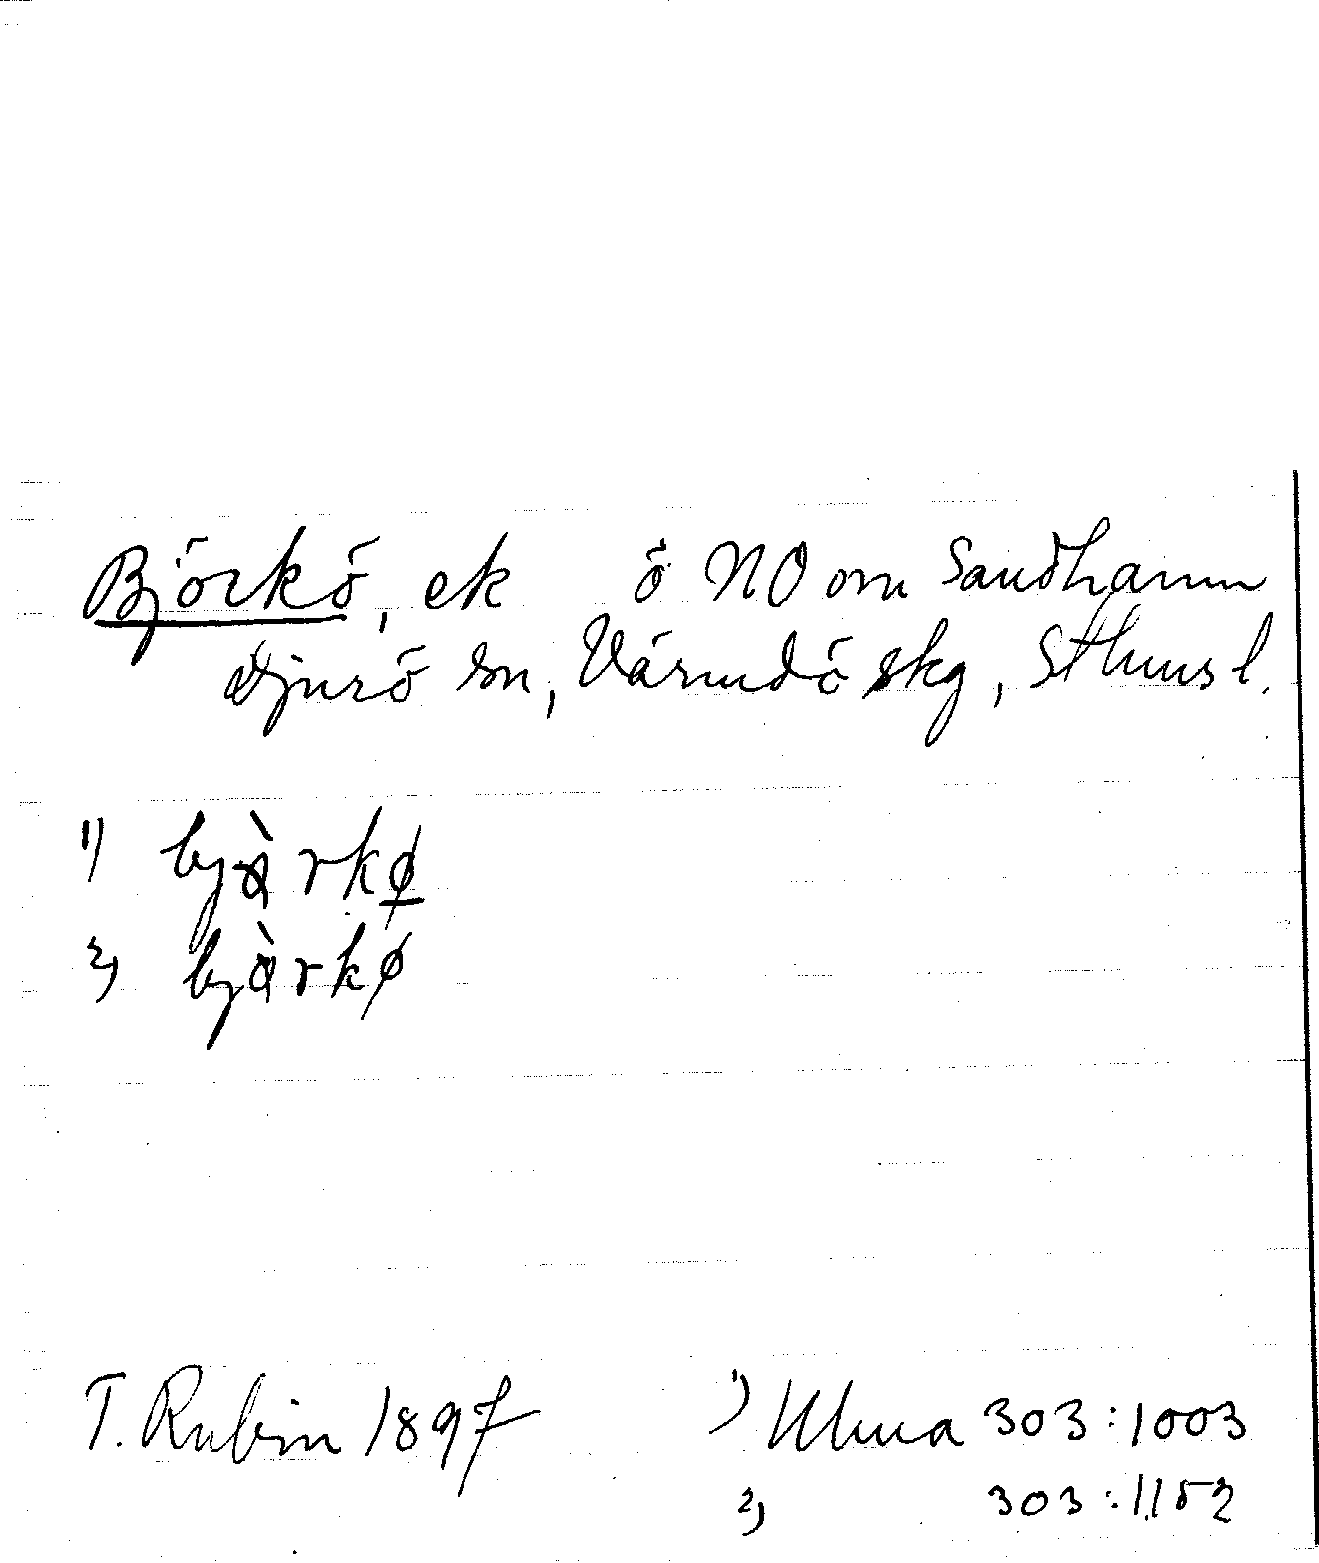 Björkö, ek ö NO om Sandhamn
Djurö sn, Värmdö skg, Sthms l.
1) bjὰrkø
2) bjὰrkø
T. Rubin 1897 1) Ulma 303:1003
2) 303:1152